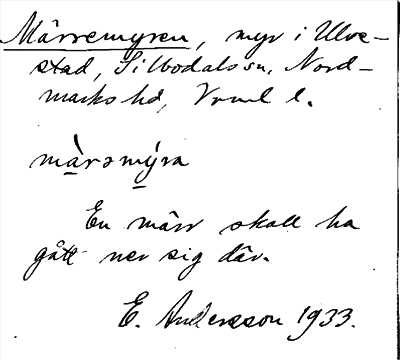 Märremyren, myr i Ulve-
stad, Silbodals sn, Nord-
marks hd, Vrml l.
mà̱rəmý̱ra
En märr skall ha
gått ner sig där.
E. Andersson 1933.